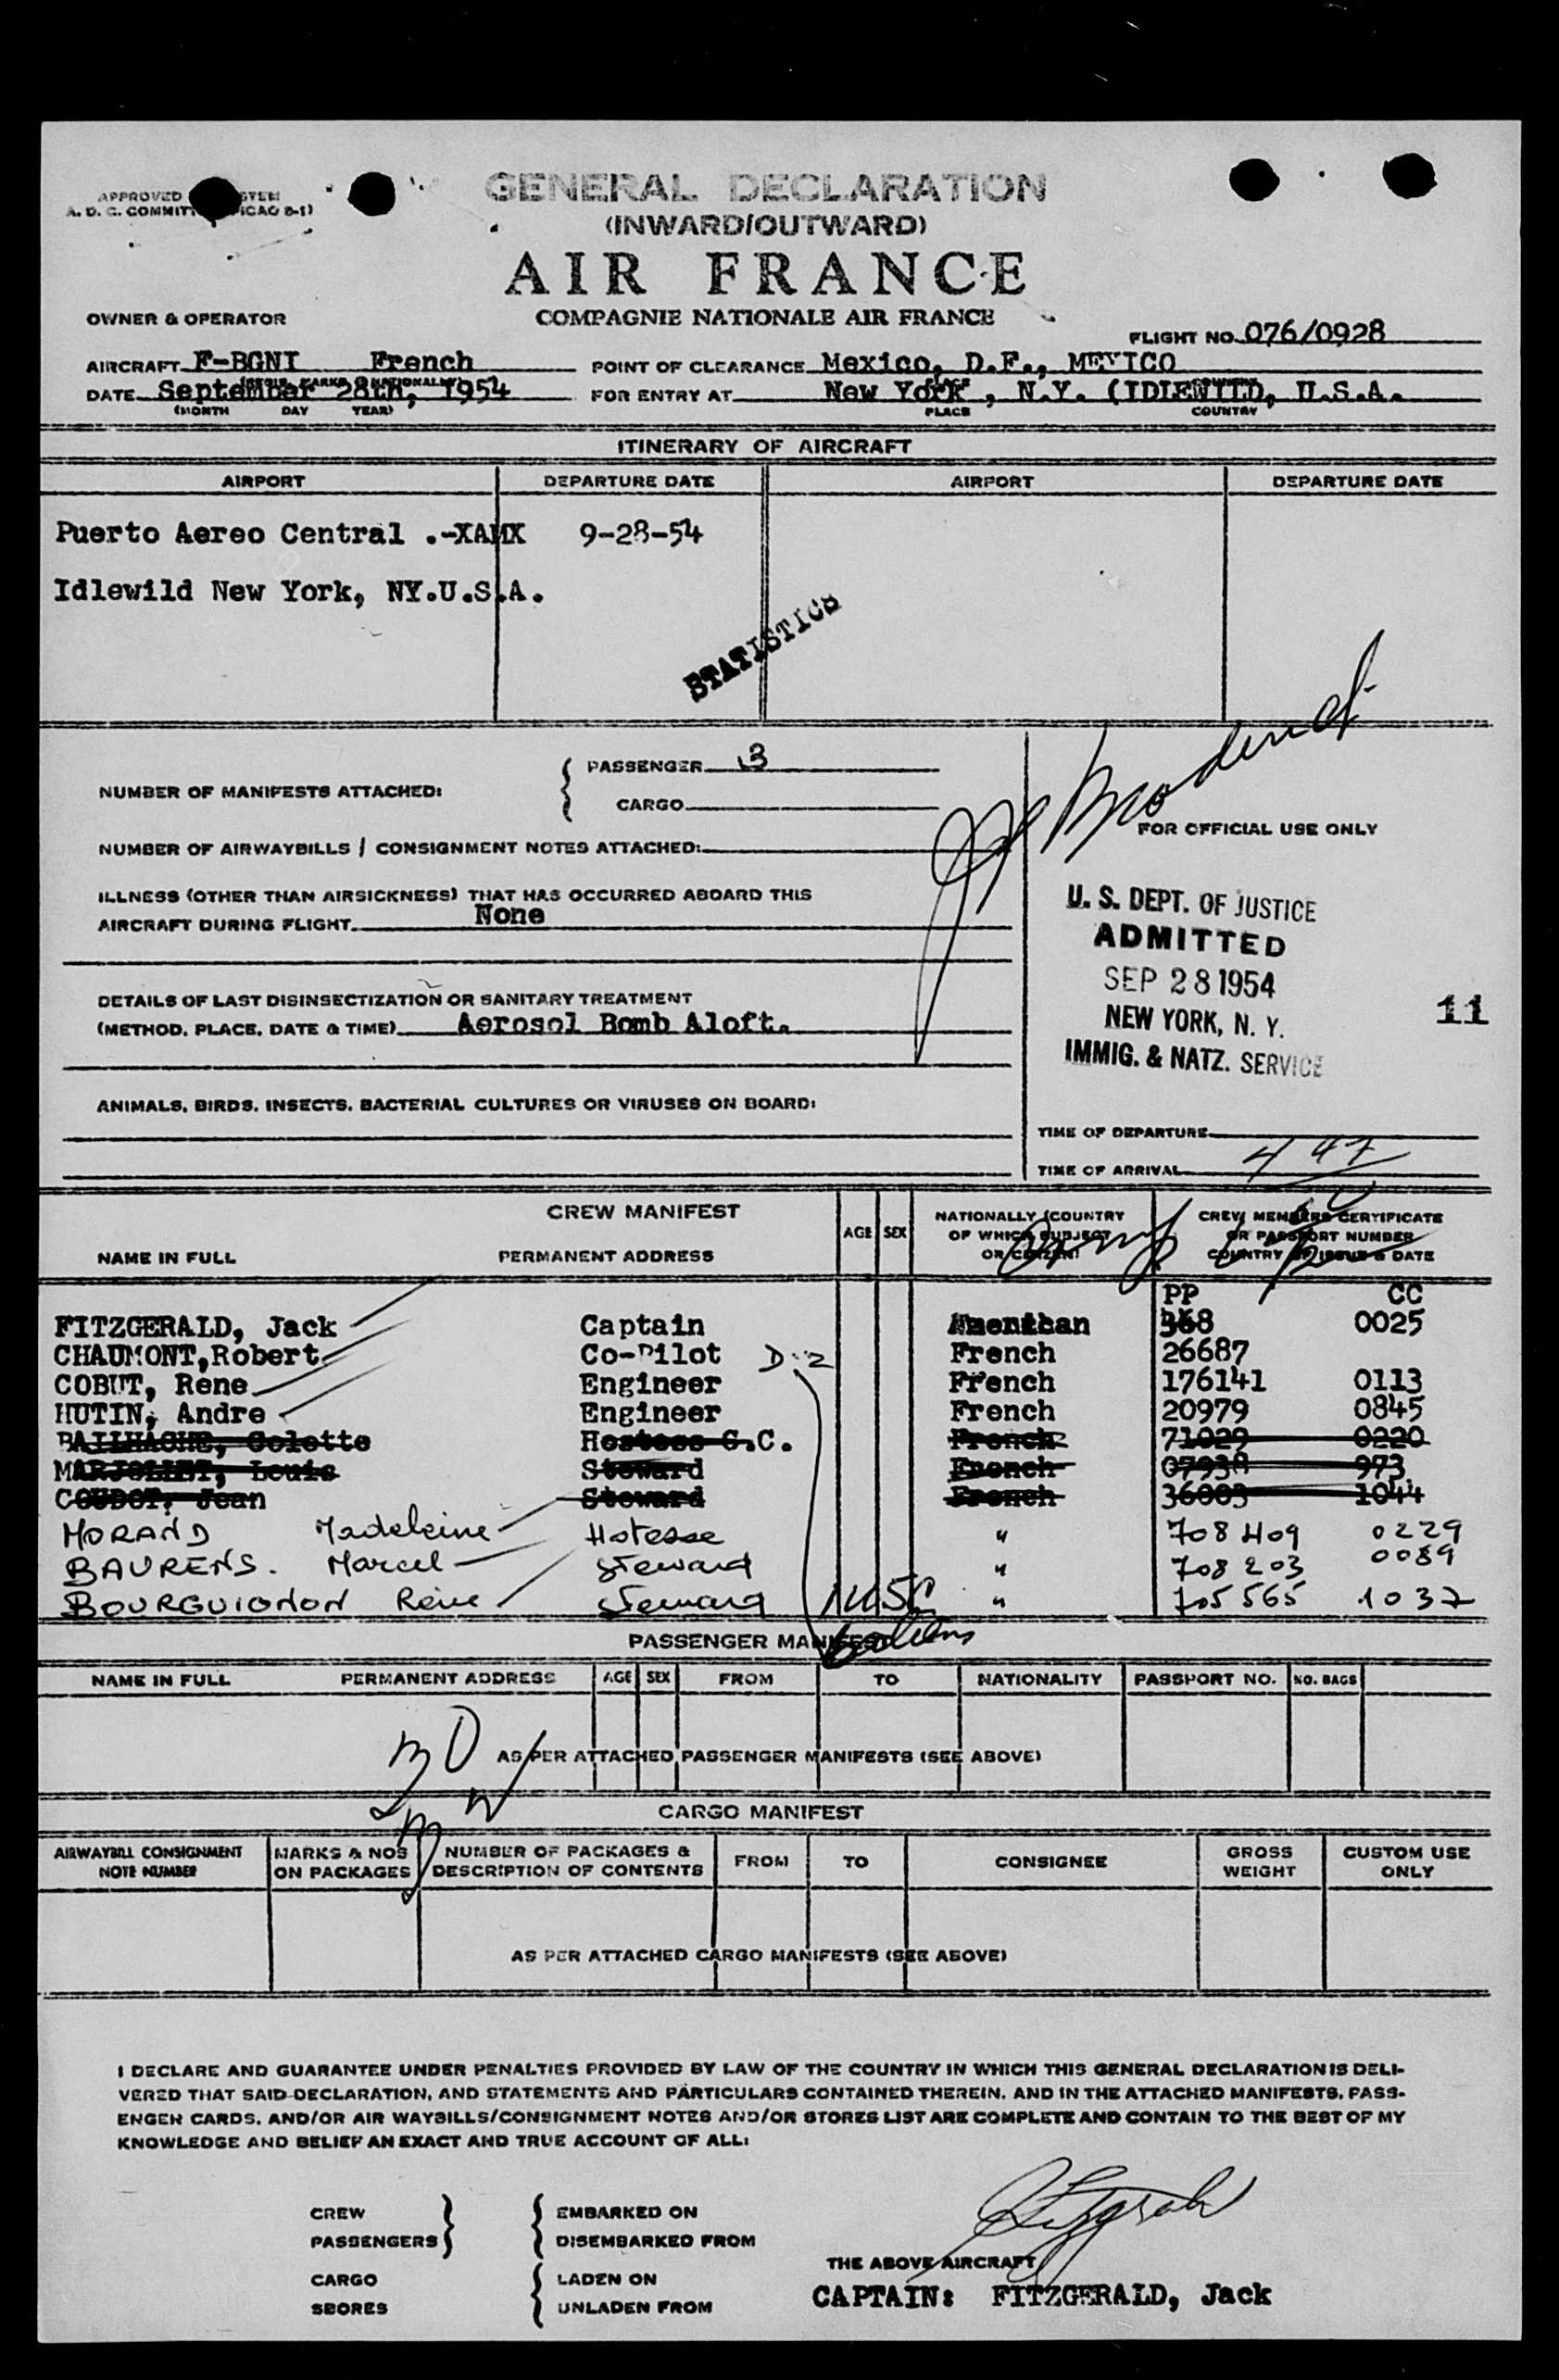 APPROVED STEM
A. D. C. COMMITT ICAO 8-1)
GENERAL DECLARATION
(INWARD/OUTWARD)
AIR FRANCE
COMPAGNIE NATIONALE AIR FRANCE
OWNER & OPERATOR
FLIGHT NO. 076/0928
AIRCRAFT F-BGNI French POINT OF CLEARANCE Mexico, D.F., MEXICO
DATE September 28th, 1954 FOR ENTRY AT New York, N.Y. (IDLEWILD, U.S.A.
(MONTH DAY YEAR) PLACE COUNTRY
ITINERARY OF AIRCRAFT
AIRPORT DEPARTURE DATE AIRPORT DEPARTURE DATE
Puerto Aereo Central .-XAMX 9-28-54
Idlewild New York, NY.U.S.A.
STATISTICS
PASSENGER 3
NUMBER OF MANIFESTS ATTACHED:
CARGO
FOR OFFICIAL USE ONLY
NUMBER OF AIRWAYBILLS / CONSIGNMENT NOTES ATTACHED:
ILLNESS (OTHER THAN AIRSICKNESS) THAT HAS OCCURRED ABOARD THIS
AIRCRAFT DURING FLIGHT. None
U. S. DEPT. OF JUSTICE
ADMITTED
SEP 28 1954
NEW YORK, N. Y.
IMMIG. & NATZ. SERVICE
11
DETAILS OF LAST DISINSECTIZATION OR SANITARY TREATMENT
(METHOD, PLACE, DATE & TIME) Aerosol Bomb Aloft.
ANIMALS, BIRDS, INSECTS, BACTERIAL CULTURES OR VIRUSES ON BOARD:
TIME OF DEPARTURE
TIME OF ARRIVAL 4 47
CREW MANIFEST
NAME IN FULL PERMANENT ADDRESS AGE SEX NATIONALLY (COUNTRY OF WHICH SUBJECT OR CITIZEN) CREW MEMBERS CERTIFICATE OR PASSPORT NUMBER COUNTRY OF ISSUE & DATE
PP CC
FITZGERALD, Jack Captain 368 0025
CHAUMONT,Robert Co-Pilot French 26687
COBUT, Rene Engineer French 176141 0113
HUTIN, Andre Engineer French 20979 0845
BAILHACHE, Colette Hostess S.C. French 71029 0220
MARJOLLET, Louis Steward French 07938 973
COUDOT, Jean Steward French 36003 1044
MORAND Madeleine Hotesse " 708409 0229
BAURENS. Marcel Steward " 708203 0089
BOURGUIGNON Reine Steward " 705565 1037
PASSENGER MANIFEST
NAME IN FULL PERMANENT ADDRESS AGE SEX FROM TO NATIONALITY PASSPORT NO. NO. BAGS
AS PER ATTACHED PASSENGER MANIFESTS (SEE ABOVE)
CARGO MANIFEST
AIRWAYBILL CONSIGNMENT NOTE NUMBER MARKS & NOS ON PACKAGES NUMBER OF PACKAGES & DESCRIPTION OF CONTENTS FROM TO CONSIGNEE GROSS WEIGHT CUSTOM USE ONLY
AS PER ATTACHED CARGO MANIFESTS (SEE ABOVE)
I DECLARE AND GUARANTEE UNDER PENALTIES PROVIDED BY LAW OF THE COUNTRY IN WHICH THIS GENERAL DECLARATION IS DELI-
VERED THAT SAID DECLARATION, AND STATEMENTS AND PARTICULARS CONTAINED THEREIN, AND IN THE ATTACHED MANIFESTS, PASS-
ENGER CARDS, AND/OR AIR WAYBILLS/CONSIGNMENT NOTES AND/OR STORES LIST ARE COMPLETE AND CONTAIN TO THE BEST OF MY
KNOWLEDGE AND BELIEF AN EXACT AND TRUE ACCOUNT OF ALL:
CREW EMBARKED ON
PASSENGERS DISEMBARKED FROM
THE ABOVE AIRCRAFT
CARGO LADEN ON
SBORES UNLADEN FROM
CAPTAIN: FITZGERALD, Jack